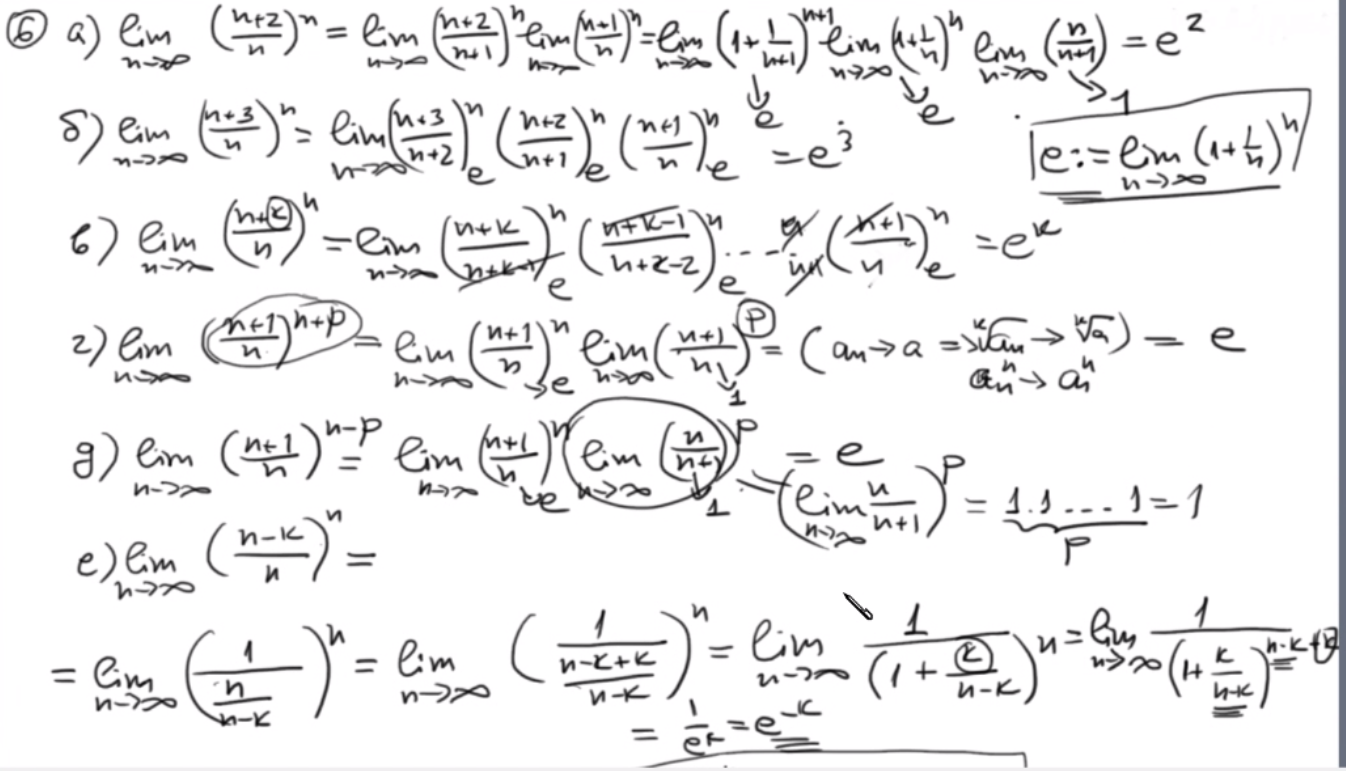 ⑥ а) lim n→∞ ((n+2)/n)^n = lim n→∞ ((n+2)/(n+1))^n lim n→∞ ((n+1)/n)^n = lim n→∞ (1+1/(n+1))^(n+1) lim n→∞ (1+1/n)^n lim n→∞ (n/(n+1)) = e^2
↓ e ↘ e ↘ 1
б) lim n→∞ ((n+3)/n)^n = lim n→∞ ((n+3)/(n+2))^n e ((n+2)/(n+1))^n e ((n+1)/n)^n e = e^3
e := lim n→∞ (1+1/n)^n
в) lim n→∞ ((n+k)/n)^n = lim n→∞ ((n+k)/(n+k-1))^n e ((n+k-1)/(n+k-2))^n e ... ((n+1)/n)^n e = e^k
г) lim n→∞ ((n+1)/n)^(n+p) = lim n→∞ ((n+1)/n)^n → e lim n→∞ ((n+1)/n)^p ↓ 1 = (an → a => ᵏ√an → ᵏ√a) = e
an^n → an^n
д) lim n→∞ ((n+1)/n)^(n-p) = lim n→∞ ((n+1)/n)^n → e lim n→∞ (n/(n+1))^p ↓ 1 = e
= (lim n→∞ n/(n+1))^p = 1.1....1 = 1
p
е) lim n→∞ ((n-k)/n)^n =
= lim n→∞ (1/(n/(n-k)))^n = lim n→∞ (1/((n-k+k)/(n-k)))^n = lim n→∞ 1/(1 + k/(n-k))^n = lim n→∞ 1/(1+k/(n-k))^(n-k+k)
= 1/e^k = e^-k